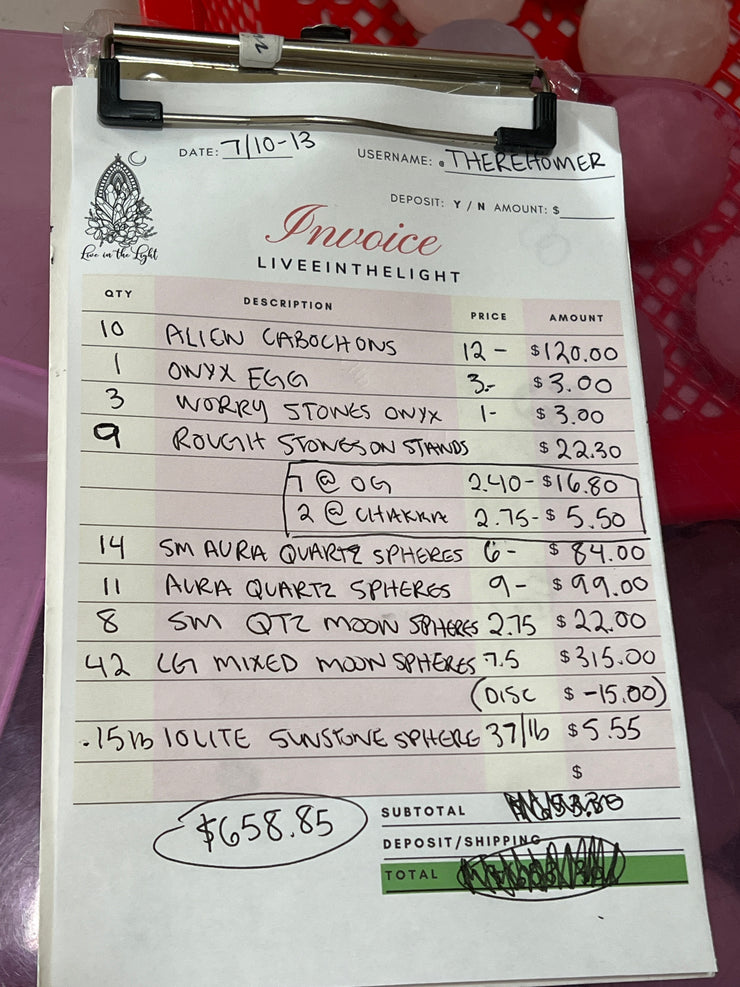 DATE: 7/10-13
USERNAME: @THEREHOMER
DEPOSIT: Y / N AMOUNT: $
Live in the Light
Invoice
LIVEEINTHELIGHT
QTY DESCRIPTION PRICE AMOUNT
10 ALIEN CABOCHONS 12- $120.00
1 ONYX EGG 3.- $3.00
3 WORRY STONES ONYX 1- $3.00
9 ROUGH STONES ON STANDS $22.30
7 @ OG 2.40- $16.80
2 @ CHAKRA 2.75- $5.50
14 SM AURA QUARTZ SPHERES 6- $84.00
11 AURA QUARTZ SPHERES 9- $99.00
8 SM QTZ MOON SPHERES 2.75 $22.00
42 LG MIXED MOON SPHERES 7.5 $315.00
(DISC $-15.00)
.15lb IOLITE SUNSTONE SPHERE 37/lb $5.55
$
$658.85
SUBTOTAL
DEPOSIT/SHIPPING
TOTAL